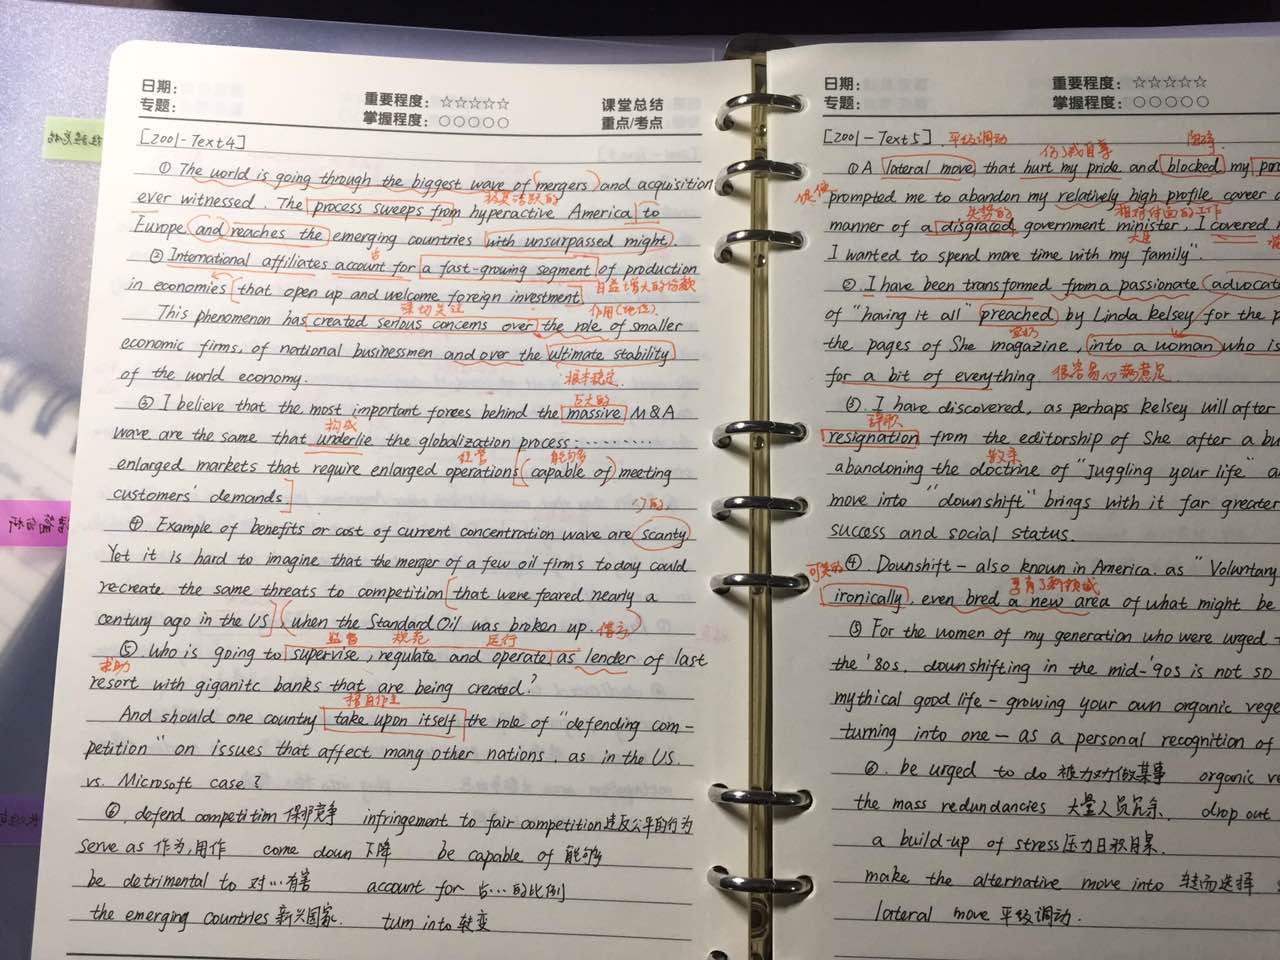 日期:
专题:
重要程度: ☆☆☆☆☆
掌握程度: ○○○○○
课堂总结
重点/考点
[2001-Text4]
① The world is going through the biggest wave of mergers and acquisition
极其活跃的
ever witnessed. The process sweeps from hyperactive America to
Europe and reaches the emerging countries with unsurpassed might.
占
② International affiliates account for a fast-growing segment of production
in economies that open up and welcome foreign investment.
日益增大的份额
深切关注
作用(地位)
This phenomenon has created serious concerns over the role of smaller
economic firms, of national businessmen and over the ultimate stability
of the world economy.
根本稳定
巨大的
③ I believe that the most important forces behind the massive M&A
构成
wave are the same that underlie the globalization process: ………
经营 能够
enlarged markets that require enlarged operations capable of meeting
customers' demands.
少的
④ Example of benefits or cost of current concentration wave are scanty
Yet it is hard to imagine that the merger of a few oil firms today could
recreate the same threats to competition that were feared nearly a
century ago in the US, when the Standard Oil was broken up.
监督 规范 运行
⑤. Who is going to supervise, regulate and operate as lender of last
求助
resort with giganitc banks that are being created?
And should one country take upon itself the role of "defending com-
petition" on issues that affect many other nations. as in the US.
vs. Microsoft case?
⑥. defend competition 保护竞争 infringement to fair competition 违反公平的行为
serve as 作为,用作 come down 下降 be capable of 能够
be detrimental to 对…有害 account for 占…的比例
the emerging countries 新兴国家. turn into 转变
日期:
专题:
重要程度: ☆☆☆☆☆
掌握程度: ○○○○○
[2001-Text5]
平级调动
伤了我自尊
阻碍
① A lateral move that hurt my pride and blocked my
促使
prompted me to abandon my relatively high profile career
失势的
manner of a disgraced government minister, I covered
大臣
I wanted to spend more time with my family".
②. I have been transformed from a passionate advocat
of "having it all" preached by Linda Kelsey for the p
the pages of She magazine, into a woman who is
for a bit of everything.
很容易心满意足
③. I have discovered, as perhaps Kelsey will after
辞职
resignation from the editorship of She after a bu
教条
abandoning the doctrine of "Juggling your life" a
move into "downshift" brings with it far greater
success and social status.
可笑的
④. Downshift – also known in America. as "Voluntary
孕育了新领域
ironically, even bred a new area of what might be
⑤ For the women of my generation who were urged
the '80s. downshifting in the mid-'90s is not so
mythical good life – growing your own organic vege
turning into one – as a personal recognition of
⑥. be urged to do 被力劝做某事 organic ve
the mass redundancies 大量人员冗余. drop out
a build-up of stress 压力日积月累.
make the alternative move into 转而选择
lateral move 平级调动.